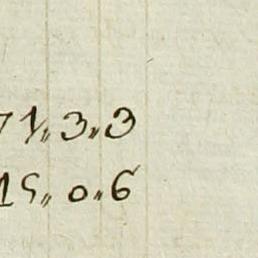 71,, 3,, 3
15,, 0,, 6